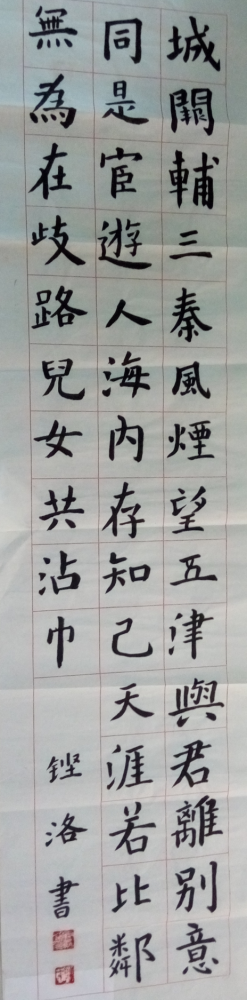 城闕輔三秦風煙望五津與君離別意
同是宦遊人海内存知己天涯若比鄰
無為在歧路兒女共沾巾
铿洛書